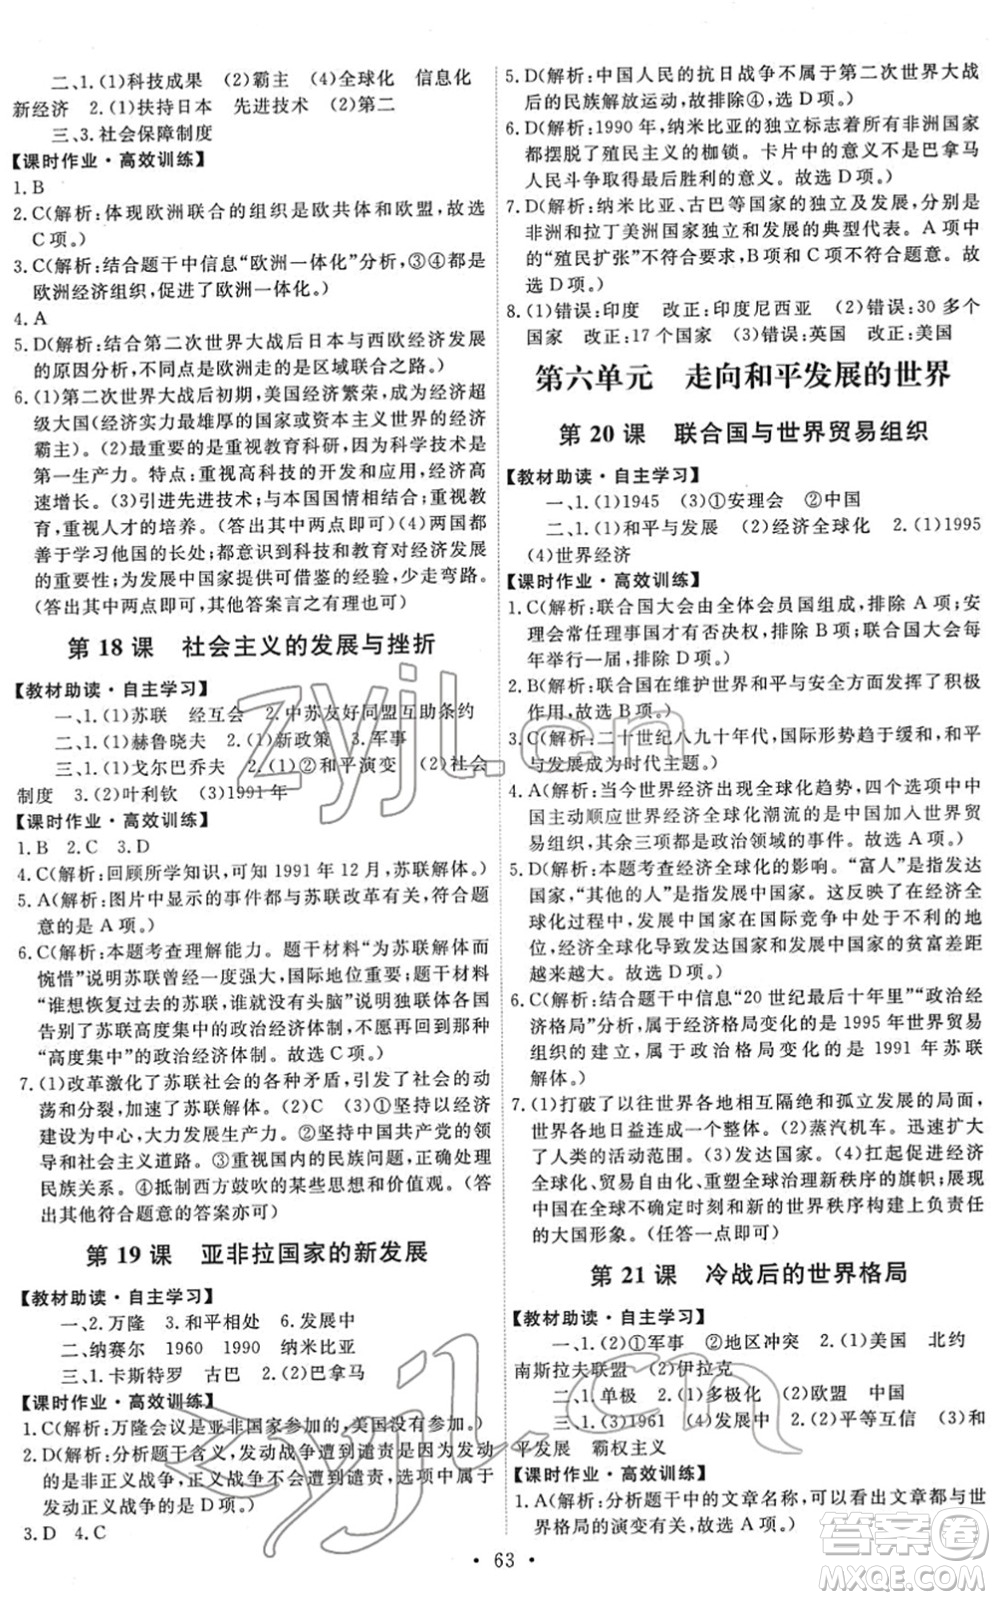 二、1.(1)科技成果　(2)霸主　(4)全球化　信息化
新经济　2.(1)扶持日本　先进技术　(2)第二
三、3.社会保障制度
【课时作业·高效训练】
1. B
2. C(解析:体现欧洲联合的组织是欧共体和欧盟,故选
C项。)
3. C(解析:结合题干中信息“欧洲一体化”分析,③④都是
欧洲经济组织,促进了欧洲一体化。)
4. A
5. D(解析:结合第二次世界大战后日本与西欧经济发展
的原因分析,不同点是欧洲走的是区域联合之路。)
6. (1)第二次世界大战后初期,美国经济繁荣,成为经济
超级大国(经济实力最雄厚的国家或资本主义世界的经济
霸主)。(2)最重要的是重视教育科研,因为科学技术是
第一生产力。特点:重视高科技的开发和应用,经济高
速增长。(3)引进先进技术;与本国国情相结合;重视教
育,重视人才的培养。(答出其中两点即可)(4)两国都
善于学习他国的长处;都意识到科技和教育对经济发展
的重要性;为发展中国家提供可借鉴的经验,少走弯路。
(答出其中两点即可,其他答案言之有理也可)
第 18 课　社会主义的发展与挫折
【教材助读·自主学习】
一、1.(1)苏联　经互会　2.中苏友好同盟互助条约
二、1.(1)赫鲁晓夫　2.(1)新政策　3.军事
三、1.(1)戈尔巴乔夫　2.(1)②和平演变　(2)社会
制度　3.(2)叶利钦　(3)1991年
【课时作业·高效训练】
1. B　2. C　3. D
4. C(解析:回顾所学知识,可知1991年12月,苏联解体。)
5. A(解析:图片中显示的事件都与苏联改革有关,符合题
意的是A项。)
6. C(解析:本题考查理解能力。题干材料“为苏联解体而
惋惜”说明苏联曾经一度强大,国际地位重要;题干材料
“谁想恢复过去的苏联,谁就没有头脑”说明独联体各国
告别了苏联高度集中的政治经济体制,不愿再走苏联
“高度集中”的政治经济体制。故选C项。)
7. (1)改革激化了苏联社会的各种矛盾,引起了社会的动
荡和分裂,加速了苏联解体。(2)C　(3)①坚持以经济
建设为中心,大力发展生产力。②坚持中国共产党的领
导和社会主义道路。③重视国内的民族问题,正确处理
民族关系。④抵制西方鼓吹的某些思想和价值观。(答
出其他符合题意的答案亦可)
第 19 课　亚非拉国家的新发展
【教材助读·自主学习】
一、2.万隆　3.和平相处　6.发展中
二、纳赛尔　1960　1990　纳米比亚
三、1.卡斯特罗　古巴　2.(2)巴拿马
【课时作业·高效训练】
1. C(解析:万隆会议是亚非国家参加的,美国没有参加。)
2. D(解析:分析题干含义,发动战争遭到谴责,因为发动
的是非正义战争,正义战争不会遭到谴责,选项中属于
发动正义战争的是D项。)
3. D　4. C
5. D(解析:中国人民的抗日战争不属于第二次世界大战
后的民族解放运动,故排除④,选D项。)
6. D(解析:1990年,纳米比亚的独立标志着所有非洲国家
都摆脱了殖民主义的枷锁。卡片中的意义不是巴拿马
人民斗争取得最后胜利的意义。故选D项。)
7. D(解析:纳米比亚、古巴等国家的独立及发展,分别是
非洲和拉丁美洲国家独立和发展的典型代表。A项中
的“殖民扩张”不符合要求,B项和C项不符合题意。
故选D项。)
8. (1)错误:印度　改正:印度尼西亚　(2)错误:30多个
国家　改正:17个国家　(3)错误:英国　改正:美国
第六单元　走向和平发展的世界
第 20 课　联合国与世界贸易组织
【教材助读·自主学习】
一、1.(1)1945　(3)①安理会　②中国
二、1.(1)和平与发展　(2)经济全球化　2.(1)1995
(4)世界经济
【课时作业·高效训练】
1. C(解析:联合国大会由全体会员国组成,排除A项;安
理会常任理事国才有否决权,排除B项;联合国大会每
年举行一届,排除D项。故选C项。)
2. B(解析:联合国在维护世界和平与安全方面发挥了积极
作用,故选B项。)
3. C(解析:二十世纪八九十年代,国际形势趋于缓和,和平
与发展成为时代主题。)
4. A(解析:当今世界经济出现全球化趋势,四个选项中中
国主动顺应世界全球化潮流的是中国加入世界贸
易组织,其余三项都是政治领域的事件。故选A项。)
5. D(解析:本题考查经济全球化的影响。“富人”是指发达
国家,“其他的人”是指发展中国家。这反映了在经济全
球化过程中,发展中国家在国际竞争中处于不利的地位,
经济全球化导致发达国家和发展中国家的贫富差距
越来越大。故选D项。)
6. C(解析:结合题干中信息“20世纪最后十年里”“政治经
济格局”分析,属于经济格局变化的是1995年世界贸易
组织的建立,属于政治格局变化的是1991年苏联
解体。)
7. (1)打破了以往世界各地相互隔绝和孤立发展的局面,
世界各地日益连成一个整体。(2)蒸汽机车。深远扩大
了人类的活动范围。(3)发达国家。(4)扛起促进经济
发展、贸易自由化、重塑全球治理新秩序的旗帜;展现出
中国在全球不确定时刻和新的世界秩序构建中担当有为
的大国形象。(任答一点即可)
第 21 课　冷战后的世界格局
【教材助读·自主学习】
一、1.(2)①军事　②地区冲突　2.(1)美国　北约
南斯拉夫联盟　(2)伊拉克
二、1.单极　2.(1)多极化　(2)欧盟　中国
三、1.(3)1961　(4)发展中　2.(2)平等互信　(3)和
平发展　霸权主义
【课时作业·高效训练】
1. A(解析:分析题干中的文章名,可以看出文章都与世
界格局的演变有关,故选A项。)
• 63 •
zyjl.cn
zyjl.cn
答案圈
MXQE.COM